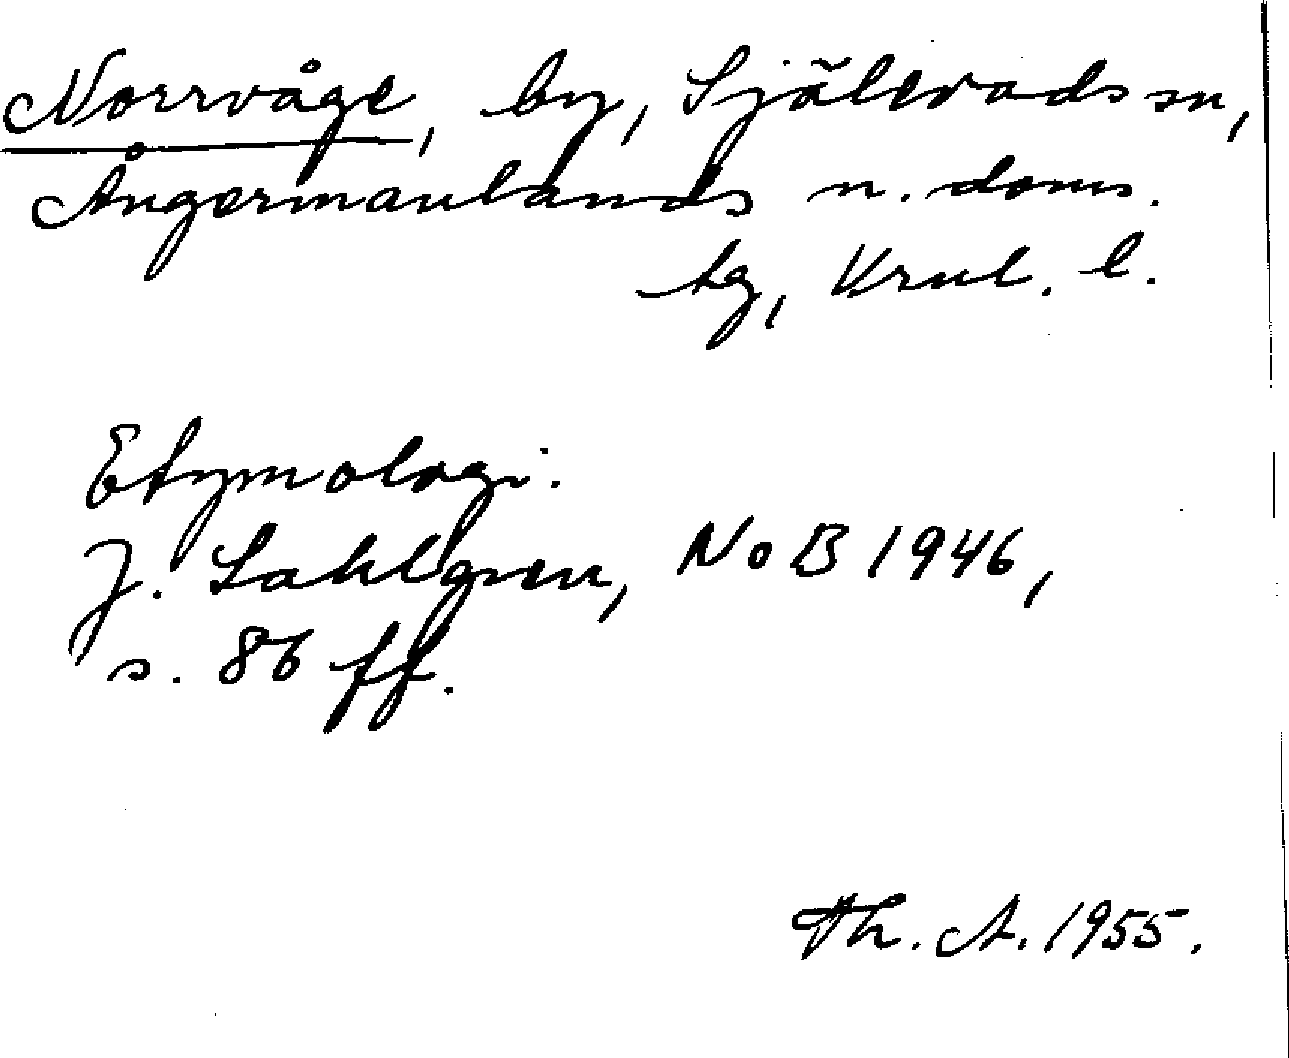 Norrvåge, by, Själevads sn,
Ångermanlands n. doms.
hg, Vrnl. l.
Etymologi.
J. Sahlgren, NoB 1946,
s. 86 ff.
Th. A. 1955.